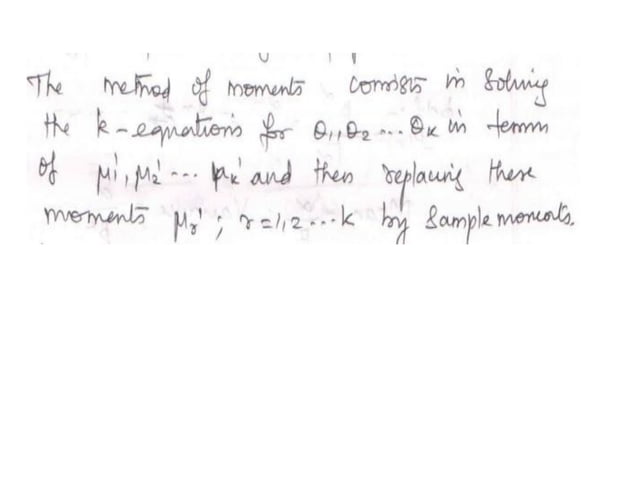 The method of moments consists in Solving
the k-equations for θ₁, θ₂ ... θₖ in terms
of μ₁', μ₂' --- μₖ' and then replacing these
moments μᵣ' ; r=1,2...k by Sample moments.